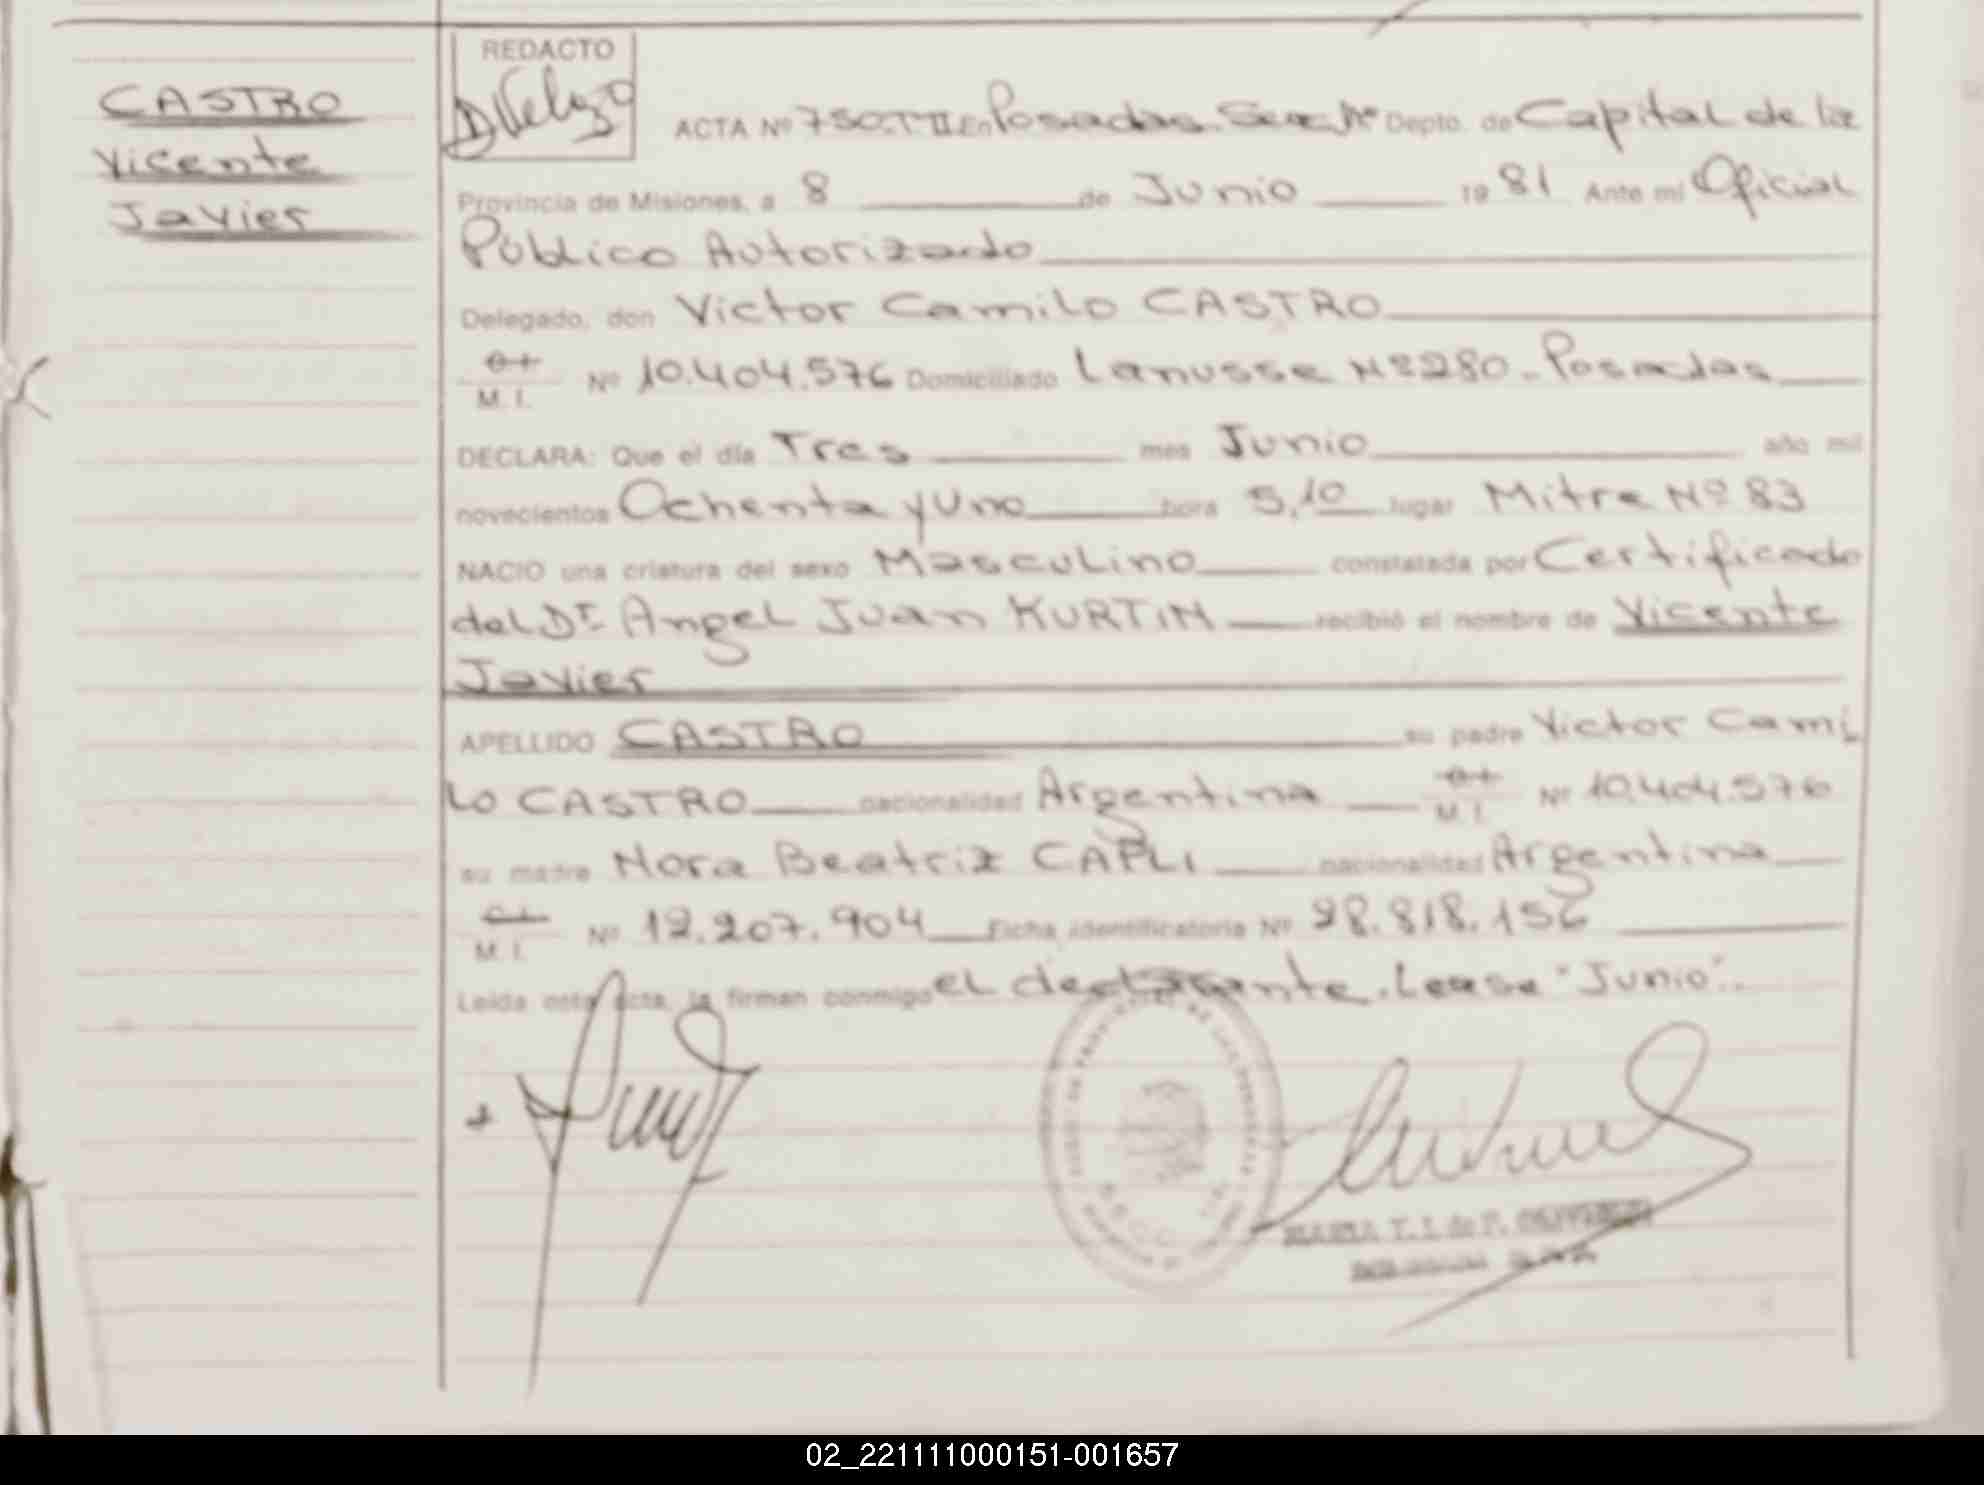 CASTRO
Vicente
Javier
REDACTO
D Velazo
ACTA Nº 750.T II En Posadas. Sec. 1ª Depto. de Capital de la
Provincia de Misiones, a 8 de Junio 19 81 Ante mí Oficial
Público Autorizado
Delegado, don Victor Camilo CASTRO
M. I. Nº 10.404.576 Domiciliado Lanusse Nº 280 - Posadas
DECLARA: Que el día Tres mes Junio año mil
novecientos Ochenta y Uno hora 5,10 lugar Mitre Nº 83
NACIO una criatura del sexo Masculino constatada por Certificado
del Dr. Angel Juan KURTIN recibió el nombre de Vicente
Javier
APELLIDO CASTRO su padre Victor Cami
lo CASTRO nacionalidad Argentina M. I. Nº 10.404.576
su madre Nora Beatriz CAPLI nacionalidad Argentina
M. I. Nº 12.207.904 Ficha identificatoria Nº 28.818.156
Leída esta acta, la firman conmigo el declarante. Lease "Junio".
MARIA T. I. de P.
02_221111000151-001657